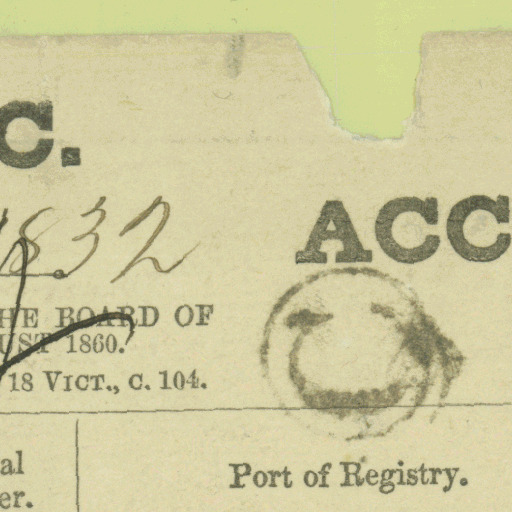 C.
1832
ACC
HE BOARD OF
UST 1860.
18 VICT., C. 104.
al
er.
Port of Registry.